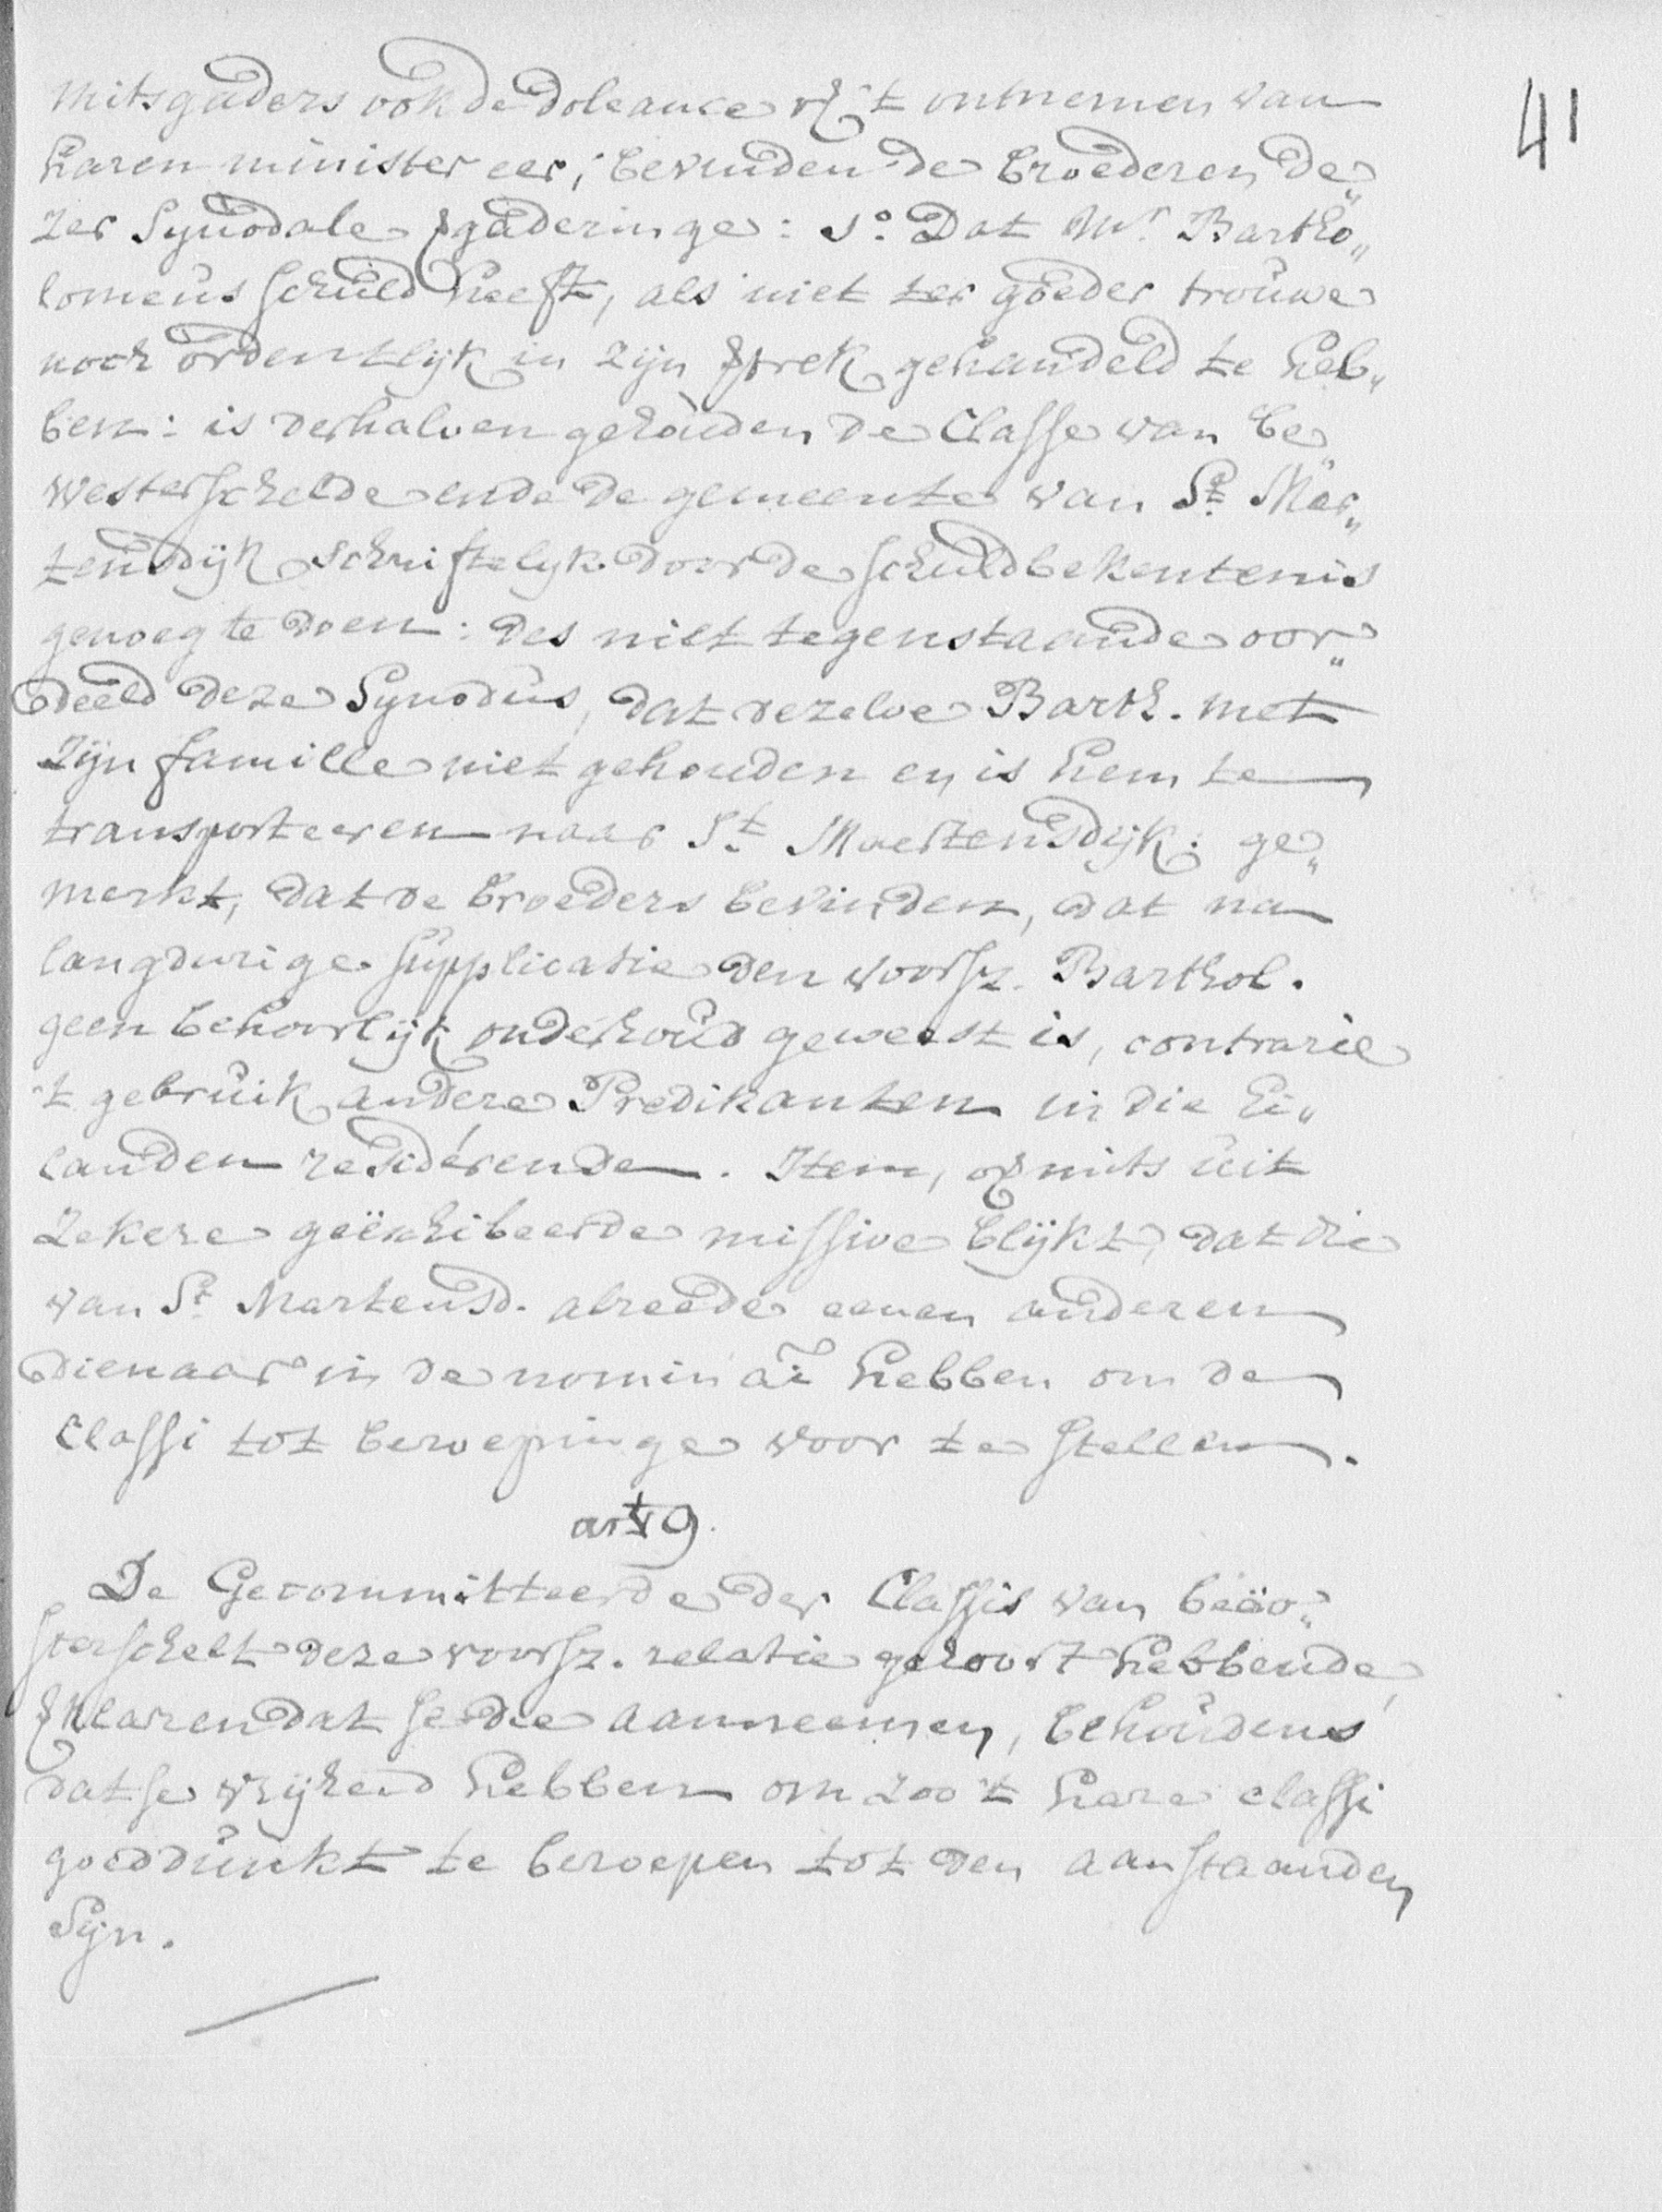 41
mitsgaders ook de doleance v̶ 't ontnemen van
haren minister eer; bevinden de broederen de„
zer Synodale v̶gaderinge: 1o. Dat Mr. Bartho„
lomeus schuld heeft, als niet ter goeder trouwe
noch ordentlijk in zijn v̶trek gehandeld te heb„
ben: is derhalven gehouden de Classe van be„
westerschelde ende de gemeente van St. Mar„
tensdijk schriftelyk door de schuldbekentenis
genoeg te doen: des niet tegenstaande oor„
deeld deze Synodus, dat dezelve Barth. met
zijn famille niet gehouden en is hem te
transporteeren naar St. Maertensdijk: ge„
merkt, dat de broeders bevinden, dat na
langdurige supplicatie den voorsz. Barthol.
geen behoorlijk onderhoud geweest is, contrarie
't gebruik andere Predikanten in die Ei„
landen residérende. Item, v̶mits uit
zekere geëxhibeerde missive blijkt, dat die
van St. Martensd. alreede eenen anderen
dienaar in de nominãe hebben om de
Classi tot beroepinge voor te stellen.
art 9.
De Gecommitteerde der Classis van beäo„
sterschelt deze voorsz. relatie gehoort hebbende,
v̶klaren dat se die aanneemen, behoudens
dat se vrijheid hebben om zoo 't hare classi
goeddunkt te beroepen tot den aanstaanden
Syn.